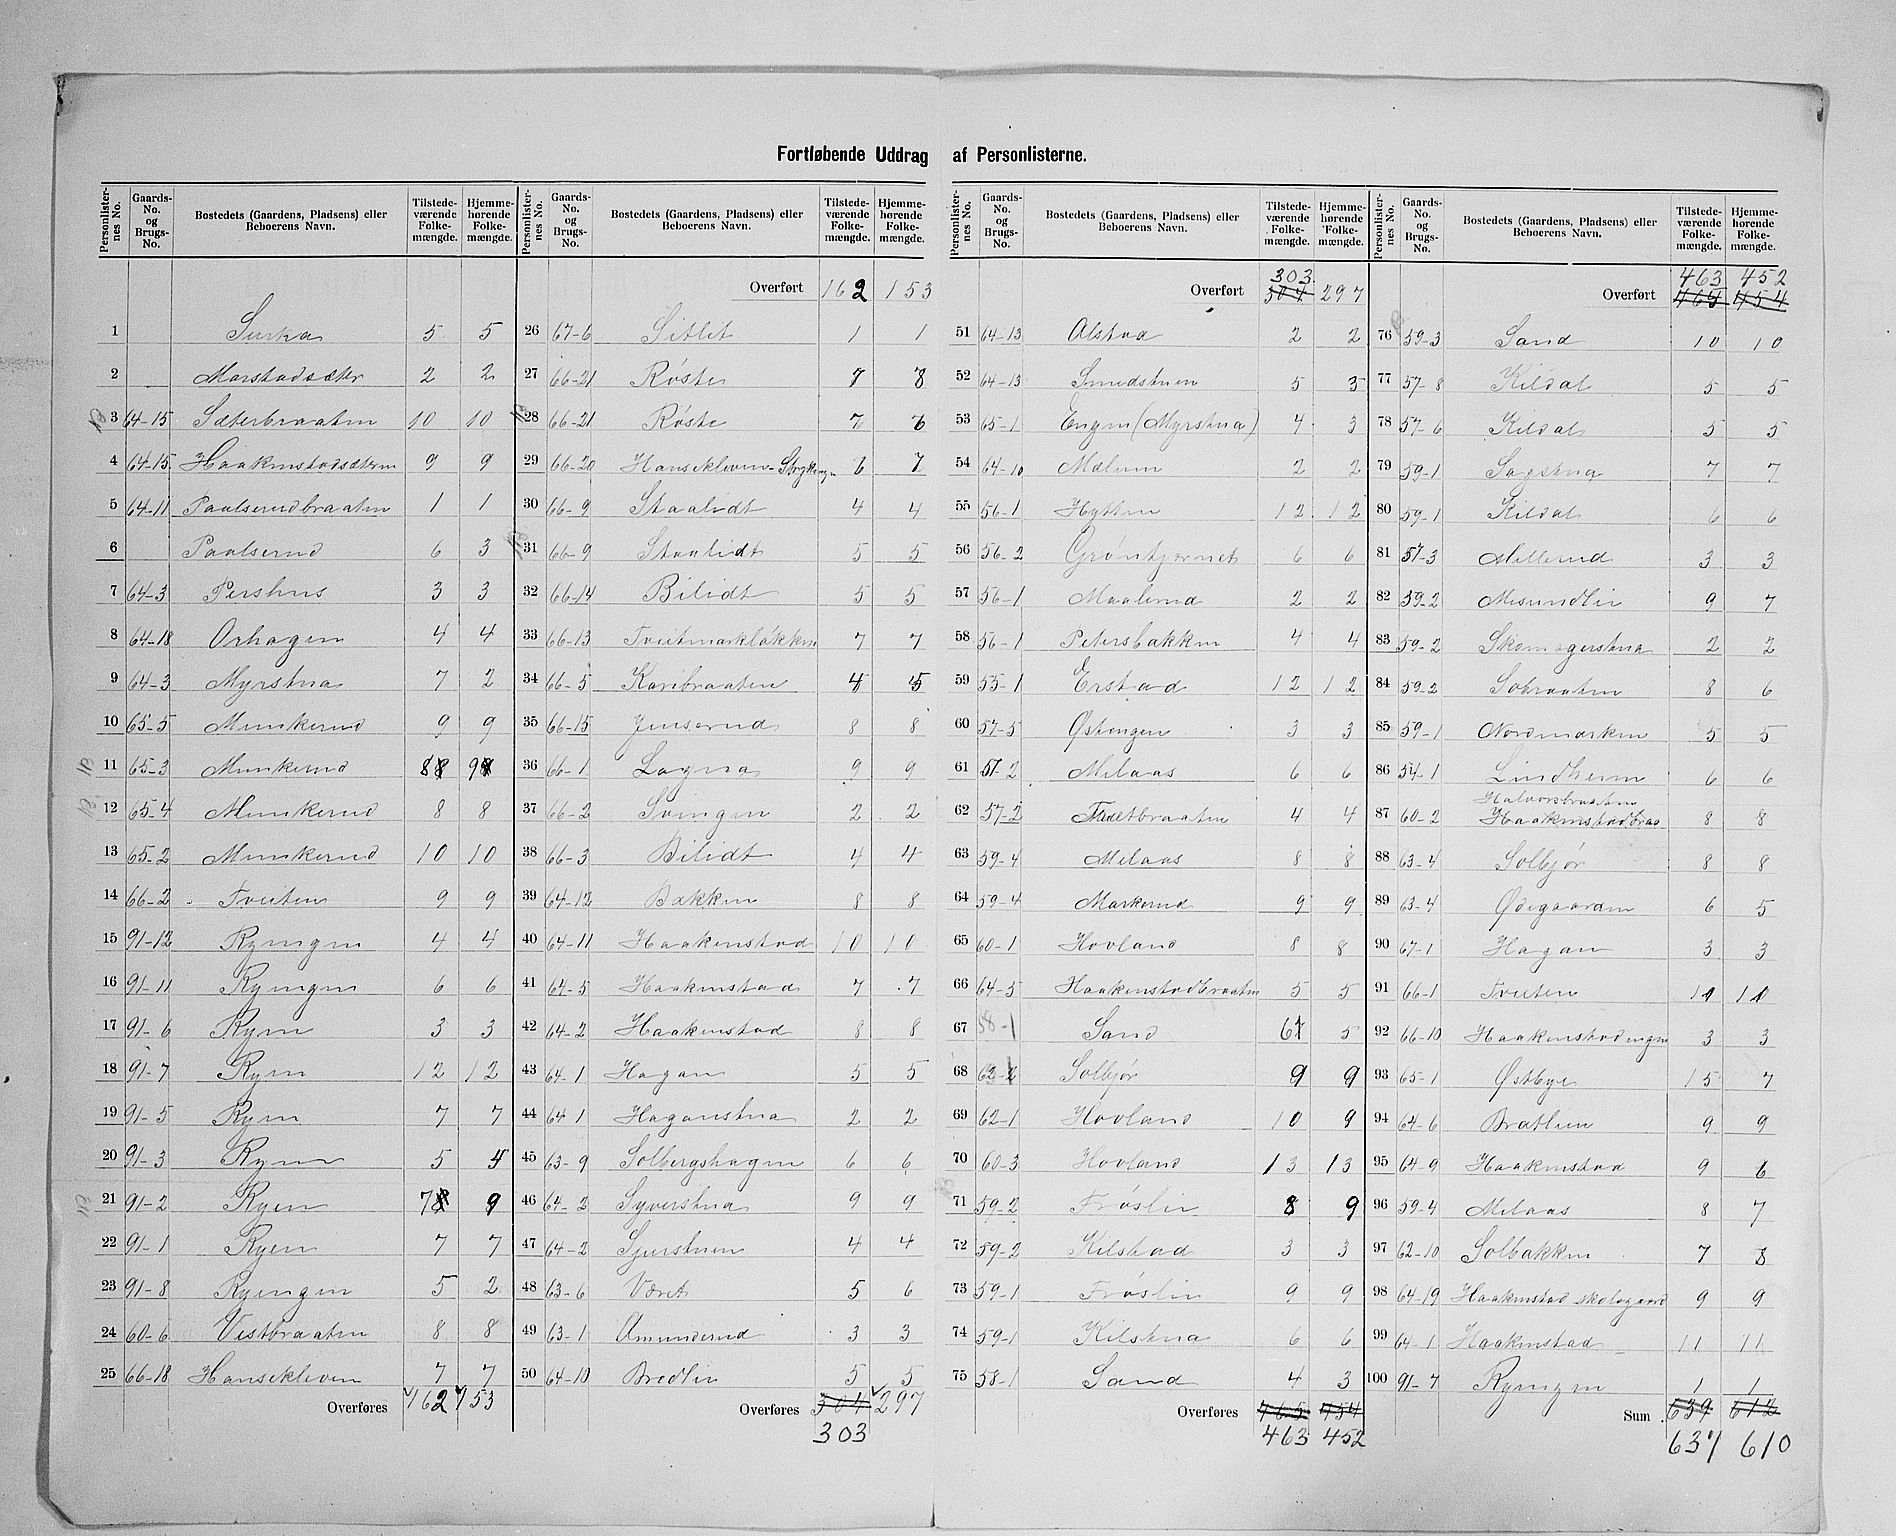 Fortløbende Uddrag af Personlisterne.
Personlister-nes No. | Gaards-No. og Brugs-No. | Bostedets (Gaardens, Pladsens) eller Beboerens Navn. | Tilstede-værende Folke-mængde. | Hjemme-hørende Folke-mængde.
1 Surka 5 5
2 Marstadsæter 2 2
3 64-15 Sæterbraaten 10 10
4 64-15 Haakenstadsæteren 9 9
5 64-11 Paalserudbraaten 1 1
6 Paalserud 6 3
7 64-3 Pershus 3 3
8 64-18 Orhagen 4 4
9 64-3 Myrstua 7 2
10 65-5 Munkerud 9 9
11 65-3 Munkerud 8 9
12 65-4 Munkerud 8 8
13 65-2 Munkerud 10 10
14 66-2 Tveiten 9 9
15 91-12 Ryengen 4 4
16 91-11 Ryengen 6 6
17 91-6 Ryen 3 3
18 91-7 Ryen 12 12
19 91-5 Ryen 7 7
20 91-3 Ryen 5 4
21 91-2 Ryen 7 9
22 91-1 Ryen 7 7
23 91-8 Ryengen 5 2
24 60-6 Vestbraaten 8 8
25 66-18 Hansekleven 7 7
Overføres 162 153
Personlister-nes No. | Gaards-No. og Brugs-No. | Bostedets (Gaardens, Pladsens) eller Beboerens Navn. | Tilstede-værende Folke-mængde. | Hjemme-hørende Folke-mængde.
Overført 162 153
26 67-6 Sitlit 1 1
27 66-21 Røste 8
28 66-21 Røste 7 6
29 66-20 Hansekleven- 6 7
30 66-9 Staalidt 4 4
31 66-9 Staalidt 5 5
32 66-14 Bilidt 5 5
33 66-13 Tveitmarkløkken 7 7
34 66-5 Karibraaten 4 5
35 66-15 Jenserud 8 8
36 66-1 Lagna 9 9
37 66-2 Svingen 2 2
38 66-3 Bilidt 4 4
39 64-12 Bakken 8 8
40 64-11 Haakenstad 10 10
41 64-5 Haakenstad 7 7
42 64-2 Haakenstad 8 8
43 64-1 Hagan 5 5
44 64 1 Haganstua 2 2
45 63-9 Solbergshagen 6 6
46 64-2 Syverstua 9 9
47 64-2 Sjurstuen 4 4
48 63-6 Været 5 6
49 63-1 Amunderud 3 3
50 64-10 Brædlie 5 5
Overføres 304 297
303
Personlister-nes No. | Gaards-No. og Brugs-No. | Bostedets (Gaardens, Pladsens) eller Beboerens Navn. | Tilstede-værende Folke-mængde. | Hjemme-hørende Folke-mængde.
303
Overført 304 297
51 64-13 Alstad 2 2
52 64-13 Smedstuen 5 3
53 65-1 Engen (Myrstua) 4 3
54 64-10 Mælum 2 2
55 56-1 Hytten 12 12
56 56-2 Grøntjernet 6 6
57 56-1 Maalerud 2 2
58 56-1 Petersbakken 4 4
59 55-1 Erstad 12 12
60 57-5 Østengen 3 3
61 57-2 Melaas 6 6
62 57-2 4 4
63 59-4 Melaas 8 8
64 59-4 Markerud 9 9
65 60-1 Hovland 8 8
66 64-5 Haakenstadbraaten 5 5
67 58-1 Sand 6 5
68 62-2 Solbjør 9 9
69 62-1 Hovland 10 9
70 60-3 Hovland 13 13
71 59-2 Frøslie 8 9
72 59-2 Kilstad 3 3
73 59-1 Frøslie 9 9
74 59-1 Kilstua 6 6
75 58-1 Sand 4 3
Overføres 465 454
463 452
Personlister-nes No. | Gaards-No. og Brugs-No. | Bostedets (Gaardens, Pladsens) eller Beboerens Navn. | Tilstede-værende Folke-mængde. | Hjemme-hørende Folke-mængde.
463 452
Overført 464 454
76 59-3 Sand 10 10
77 57-8 Kildal 5 5
78 57-6 Kildal 5 5
79 59-1 Sagstua 7 7
80 59-1 Kildal 6 6
81 57-3 Mellerud 3 3
82 59-2 Mesundlie 9 7
83 59-2 Skomagerstua 2 2
84 59-2 Sobraaten 8 6
85 59-1 Nordmarken 5 5
86 54-1 Lindheim 6 6
Halvorsbraaten
87 60-2 Haakenstadbraa 8 8
88 63-4 Solbjør 8 8
89 63-4 Ødegaarden 6 5
90 67-1 Hagan 3 3
91 66-1 Tveiten 11 10
92 66-10 Haakenstadengen 3 3
93 65-1 Østbye 15 7
94 64-6 Brætlien 9 9
95 64-9 Haakenstad 9 6
96 59-4 Melaas 8 7
97 62-10 Solbakken 7 8
98 64-19 Haakenstad skolegaard 9 9
99 64-1 Haakenstad 11 11
100 91-7 Ryengen 1 1
Sum 639 612
637 610